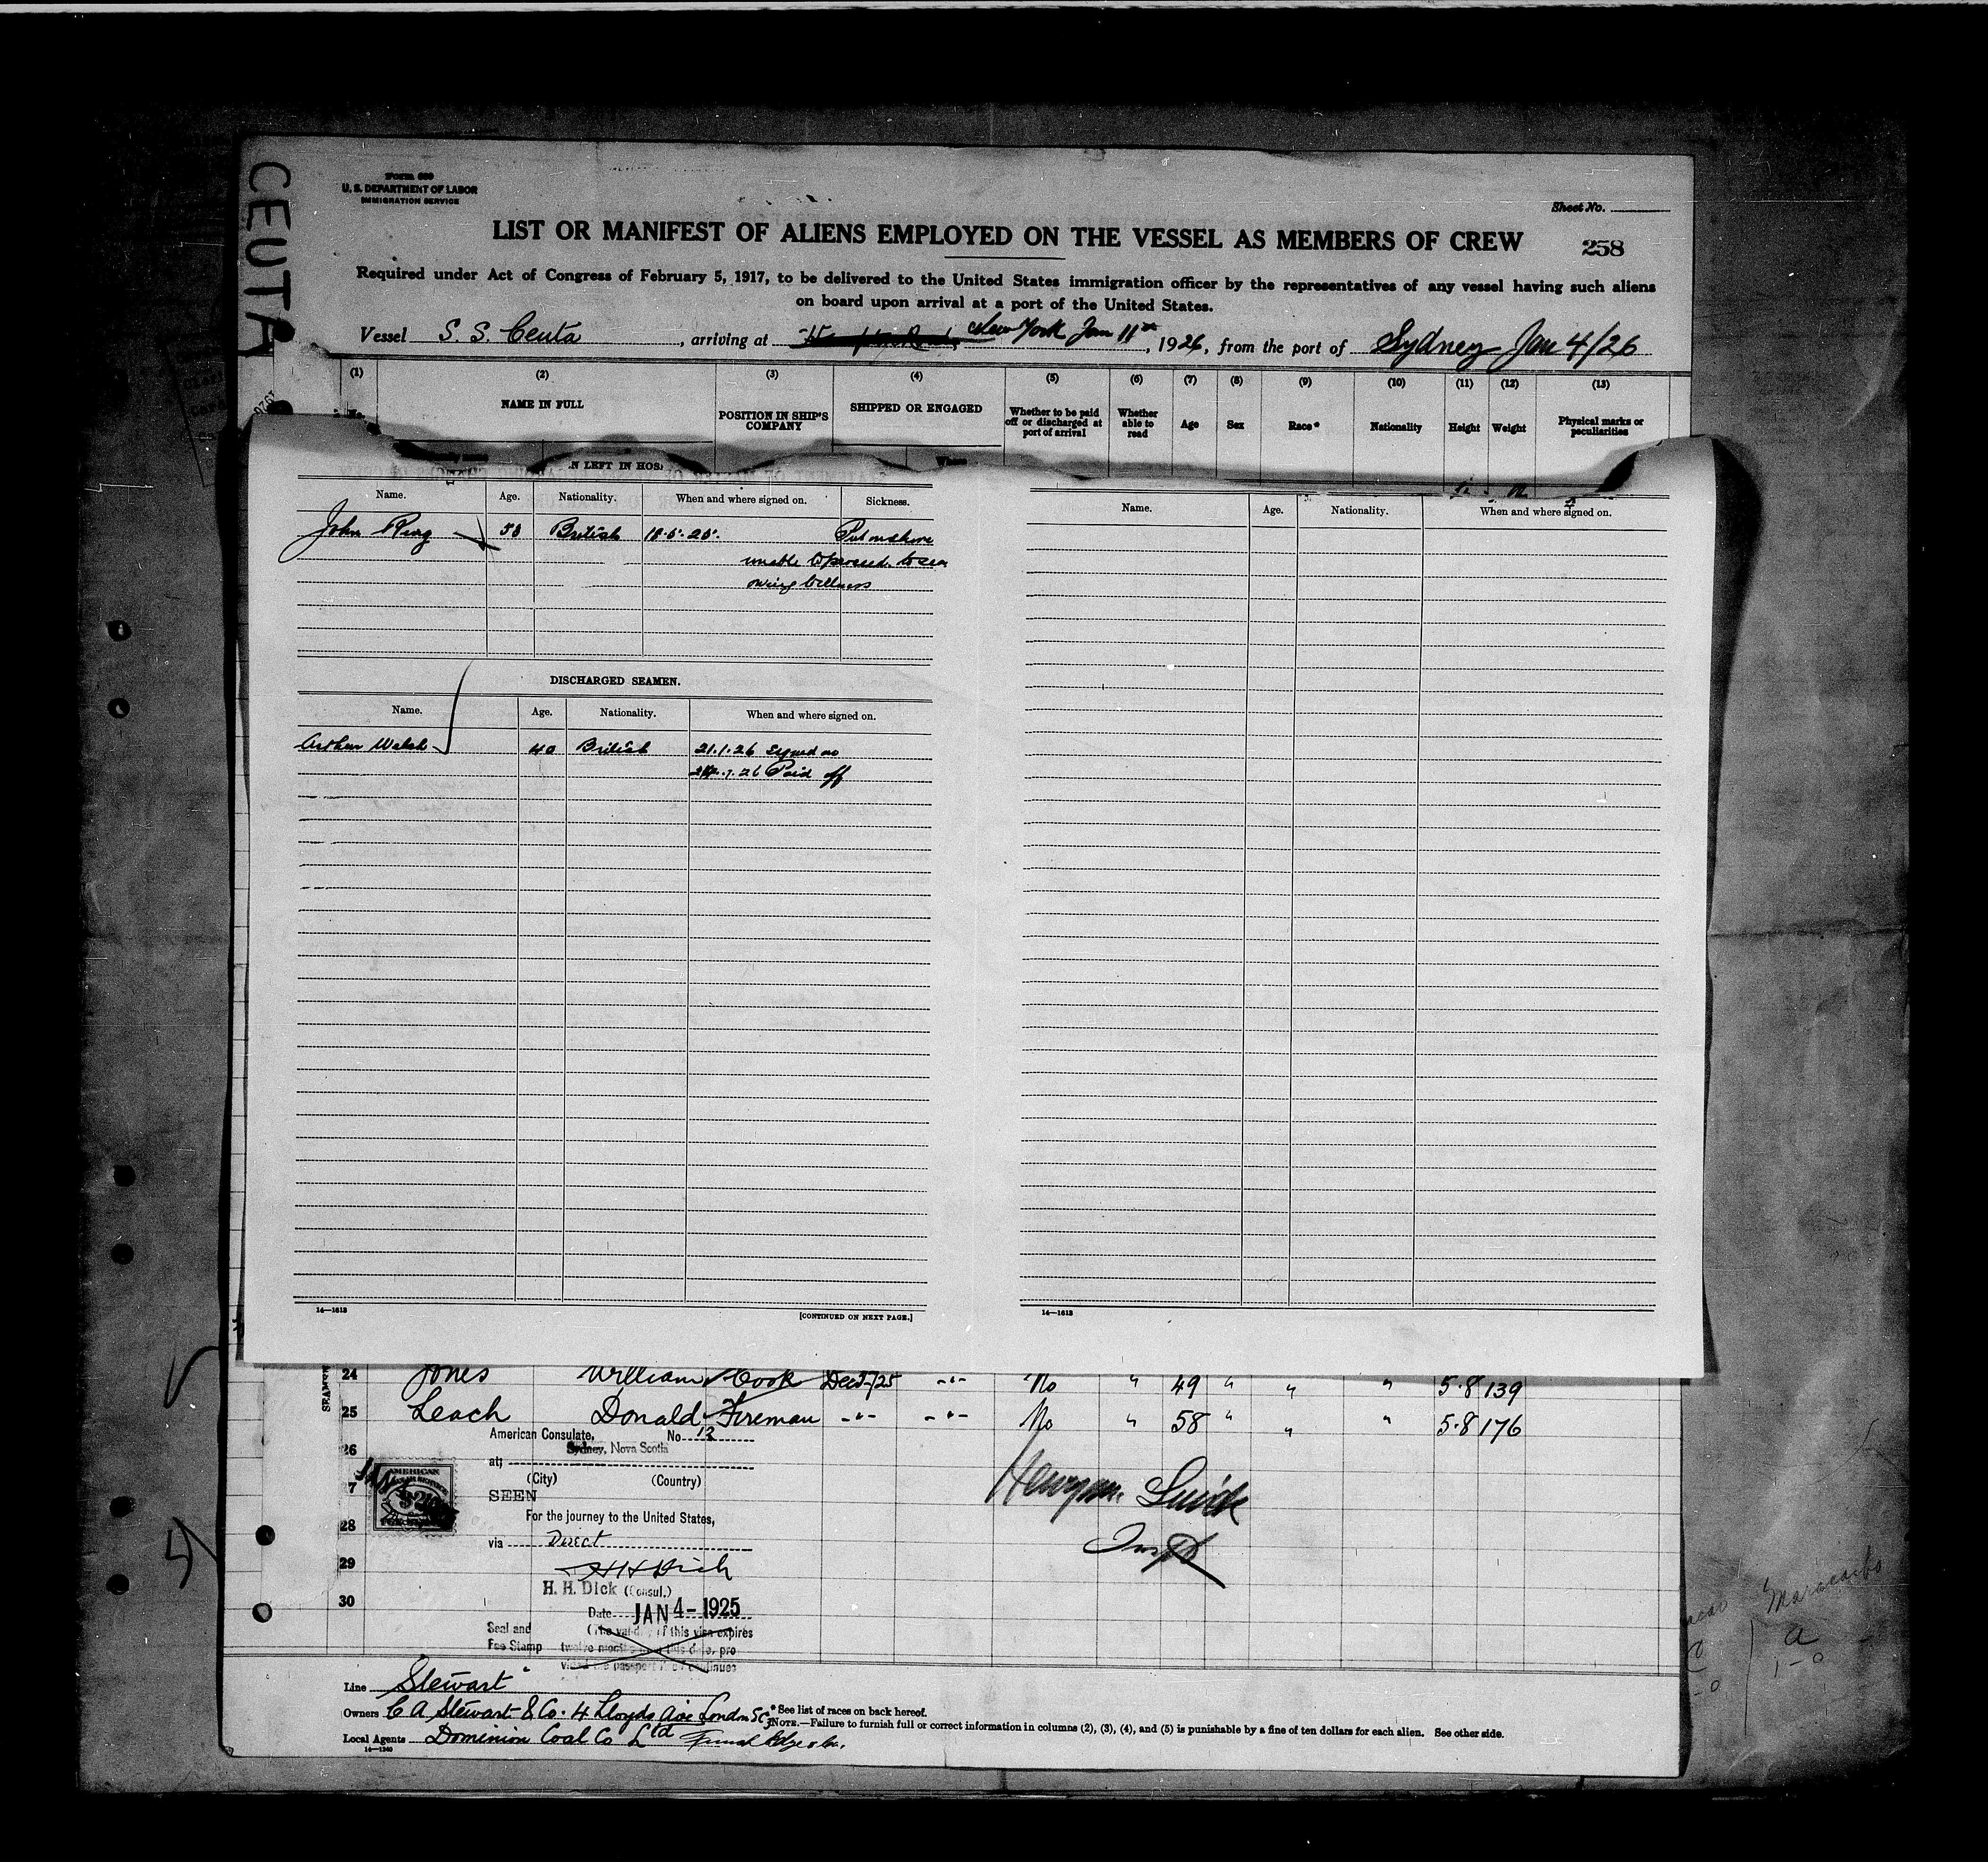 CEUTA
Form 689
U. S. DEPARTMENT OF LABOR
IMMIGRATION SERVICE
Sheet No.
LIST OR MANIFEST OF ALIENS EMPLOYED ON THE VESSEL AS MEMBERS OF CREW
258
Required under Act of Congress of February 5, 1917, to be delivered to the United States immigration officer by the representatives of any vessel having such aliens
on board upon arrival at a port of the United States.
Vessel S. S. Ceuta, arriving at New York Jan 11th, 1926, from the port of Sydney Jan 4/26
(1) (2) (3) (4) (5) (6) (7) (8) (9) (10) (11) (12) (13)
No. NAME IN FULL POSITION IN SHIP'S COMPANY SHIPPED OR ENGAGED Whether to be paid off or discharged at port of arrival Whether able to read Age Sex Race* Nationality Height Weight Physical marks or peculiarities
N LEFT IN HOS
Name. Age. Nationality. When and where signed on. Sickness.
John Ring 58 British 18.5.25. Put on shore
unable to proceed to sea
owing to illness
DISCHARGED SEAMEN.
Name. Age. Nationality. When and where signed on.
Arthur Welsh 40 British 21.1.26 Signed on
.1.26 Paid off
14—1613
[CONTINUED ON NEXT PAGE.]
Name. Age. Nationality. When and where signed on.
14—1613
24 Jones William Cook Dec5/25 -"- No " 49 " " " 5.8 139
25 Leach Donald Fireman -"- -"- No " 58 " " " 5.8 176
26
7
28
29
30
American Consulate, No 12
Sydney, Nova Scotia
at
(City) (Country)
SEEN
For the journey to the United States,
via Direct
H H Dick
H. H. Dick (Consul.)
Date JAN 4-1925
(The validity of this visa expires
twelve months from this date, pro
vided the passport continues
Seal and
Fee Stamp
AMERICAN
Insp
Line Stewart
Owners C A Stewart & Co. 4 Lloyds Ave London EC3
Local Agents Dominion Coal Co Ltd
14—1240
* See list of races on back hereof.
NOTE.—Failure to furnish full or correct information in columns (2), (3), (4), and (5) is punishable by a fine of ten dollars for each alien. See other side.
Maracaibo
a
1-0